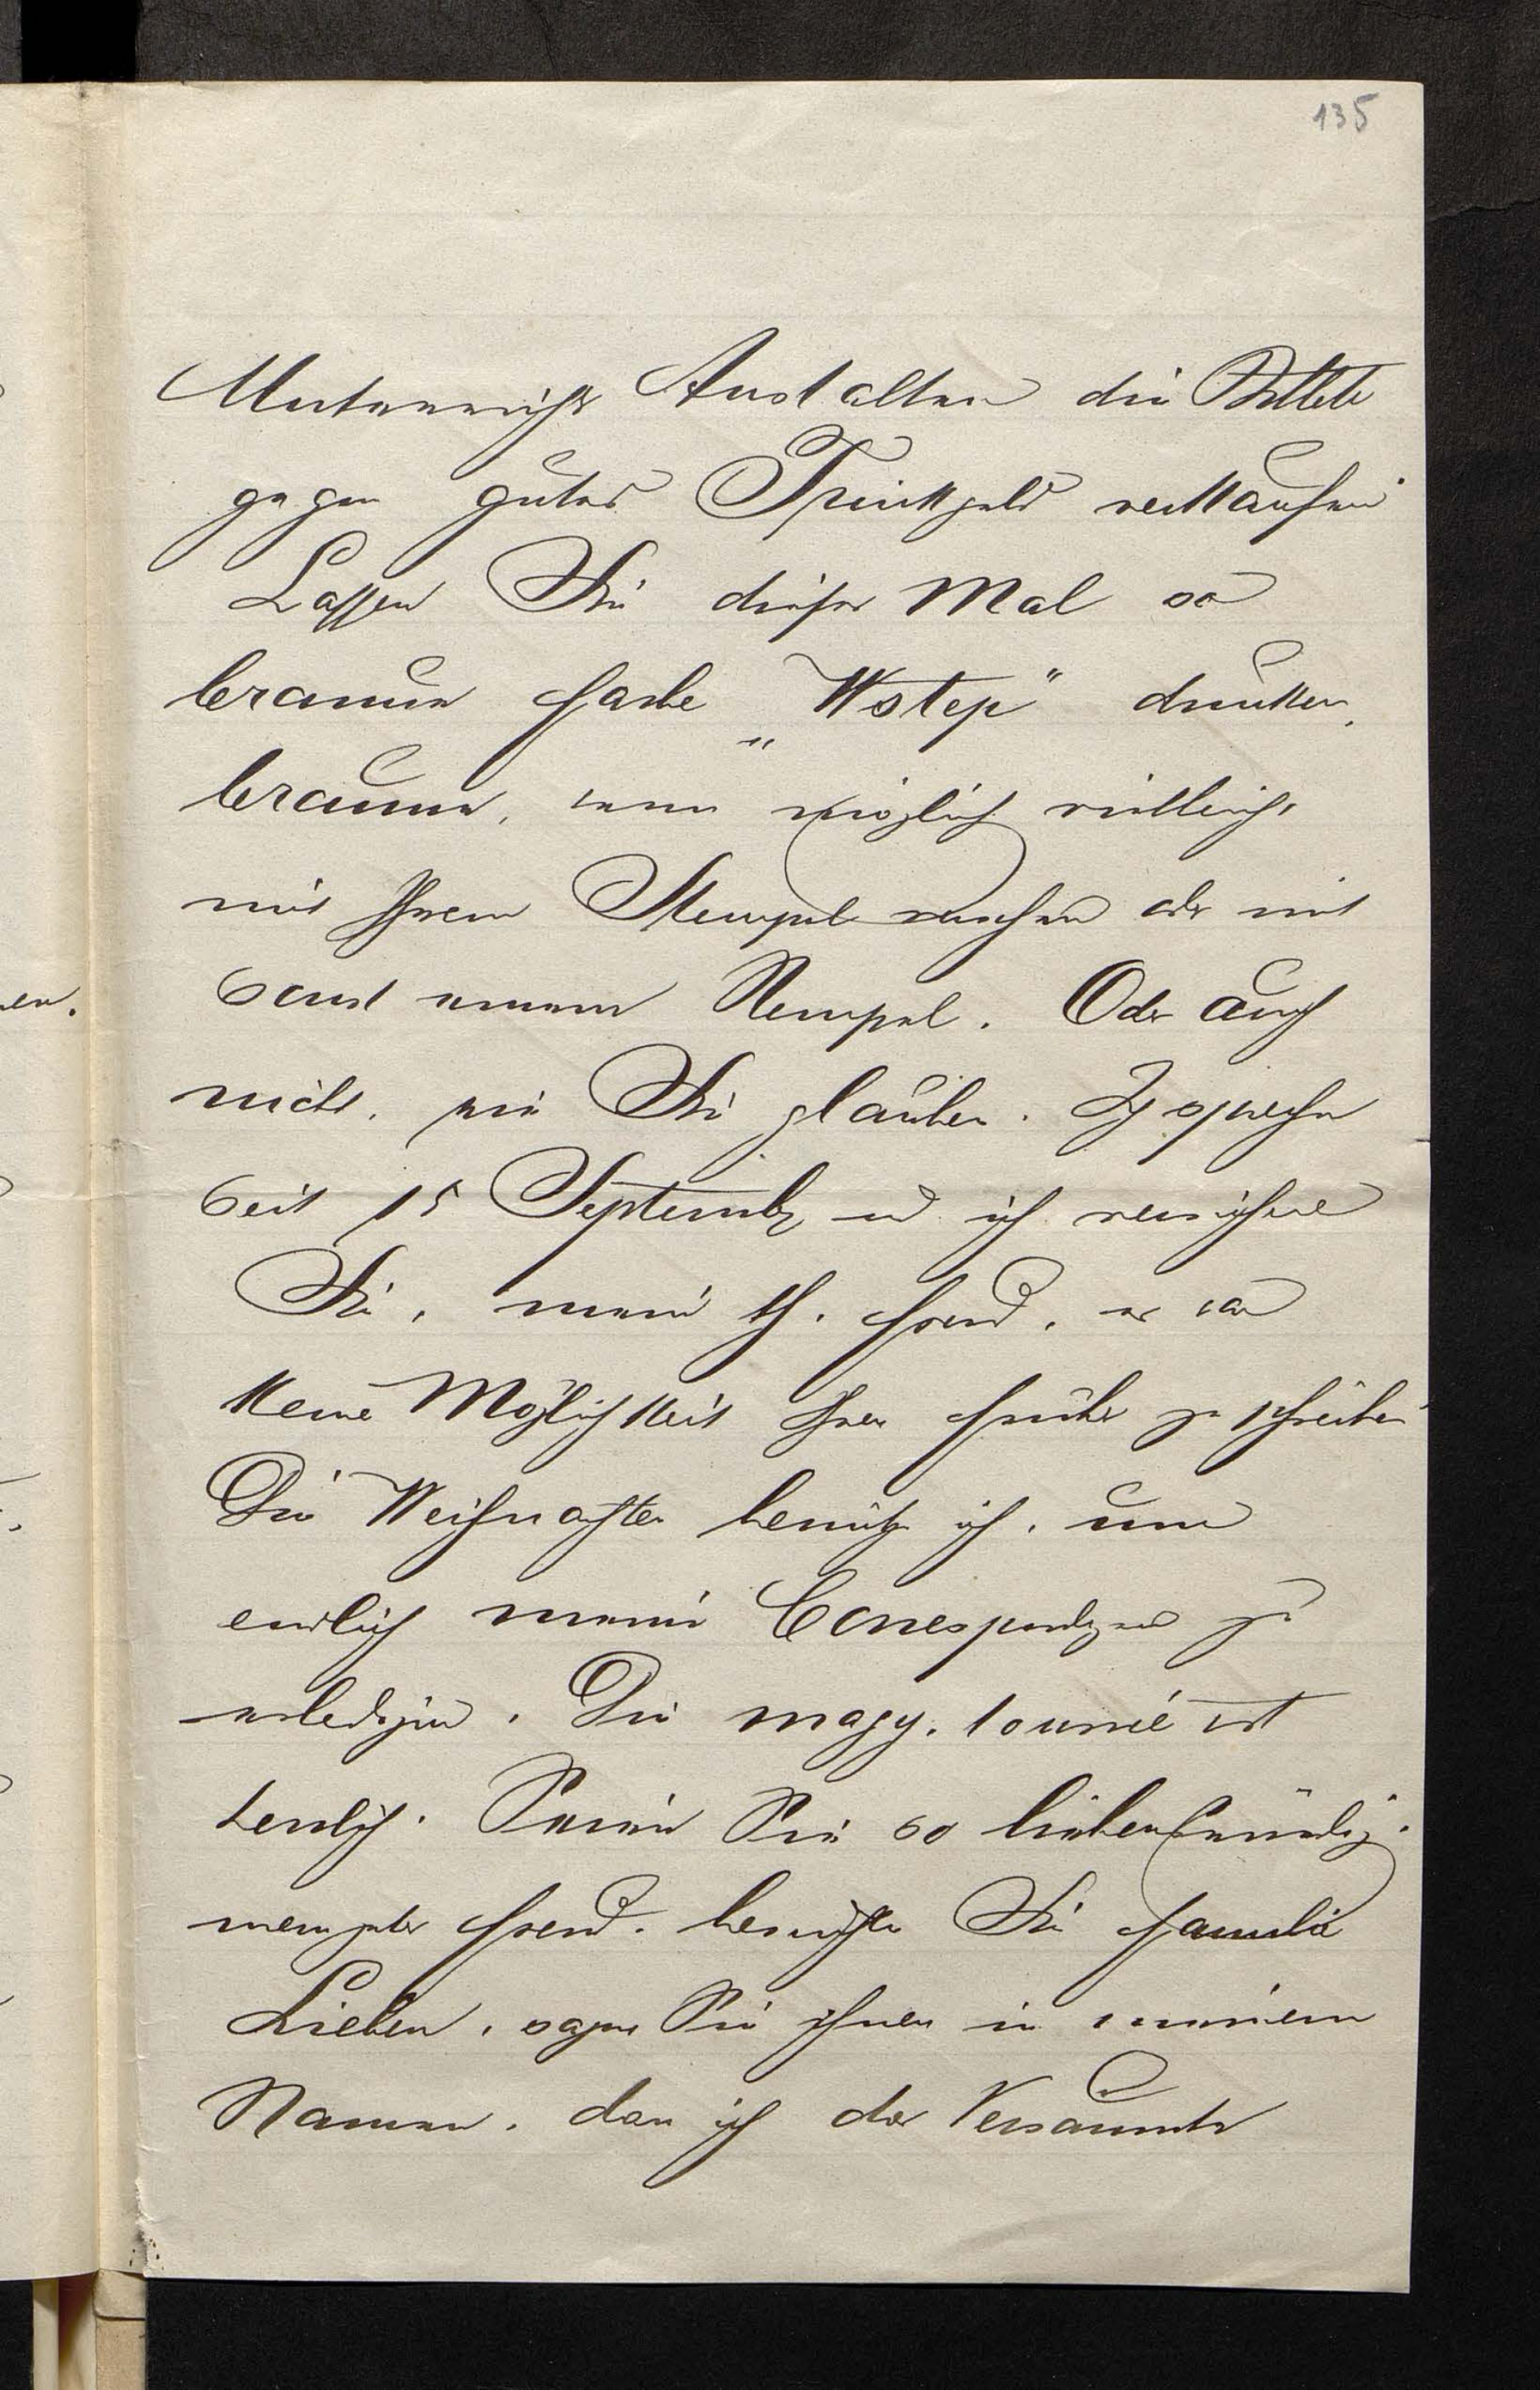 135
Unterrichts Anstalten die Billete
gegen gutes Trinkgeld verkaufen
Lassen Sie dieses Mal so
braune Farbe „Wstęp" druken,
braune, wenn möglich vielleicht
mit Ihrem Stempel versehen oder mit
sonst einem Stempel. Oder auch
nicht, wie Sie glauben. Ich
seit 15 Septemb und ich versichere
Sie, mein th. Freund, es war
keine Möglichkeit Ihnen früher zu schreiben
Die Weihnachten benütze ich, um
endlich meine Correspondenz zu
erledigen. Die magy. tourné ist
herrlich. Seien Sie so liebenswürdig,
mein guter Freund, besuchen Sie Familie
Lieben, sagen Sie ihnen in meinem
Namen, dass ich das Versäumte
en.